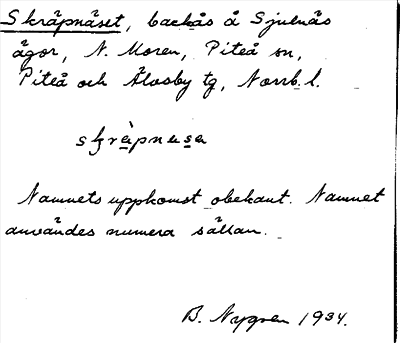 Skråpnäset, backås å Sjulnäs
ägor, N. Moren, Piteå sn,
Piteå och Älvsby tg, Norrb. l.
Namnets uppkomst obekant. Namnet
användes numera sällan.
B. Nygren 1934.